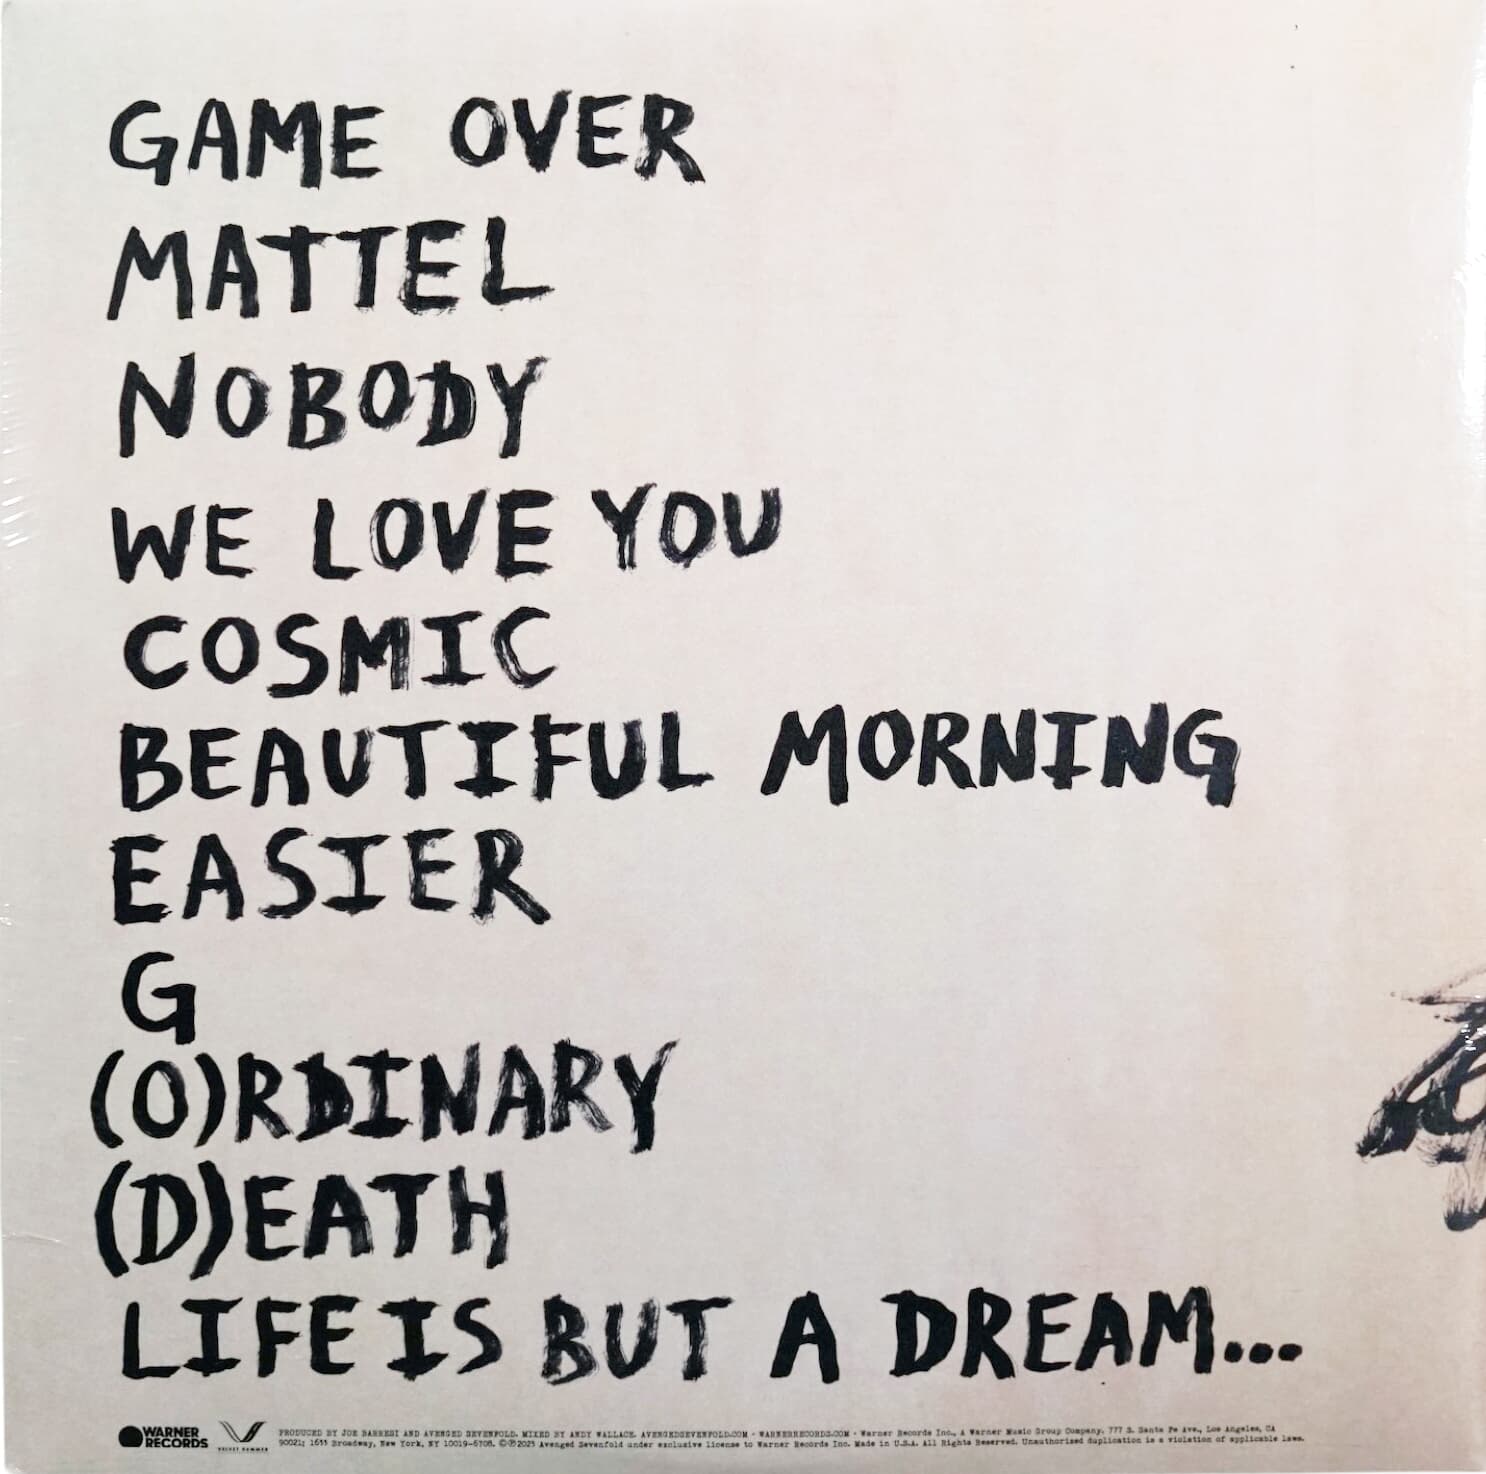 GAME OVER
MATTEL
NOBODY
WE LOVE YOU
COSMIC
BEAUTIFUL MORNING
EASIER
G
(O)RDINARY
(D)EATH
LIFE IS BUT A DREAM...
WARNER
RECORDS
VELVET HAMMER
PRODUCED BY JOE BARRESI AND AVENGED SEVENFOLD. MIXED BY ANDY WALLACE. AVENGEDSEVENFOLD.COM • WARNERRECORDS.COM • Warner Records Inc., A Warner Music Group Company. 777 S. Santa Fe Ave., Los Angeles, CA
90021; 1633 Broadway, New York, NY 10019-6708. ©℗ 2023 Avenged Sevenfold under exclusive license to Warner Records Inc. Made in U.S.A. All Rights Reserved. Unauthorized duplication is a violation of applicable laws.